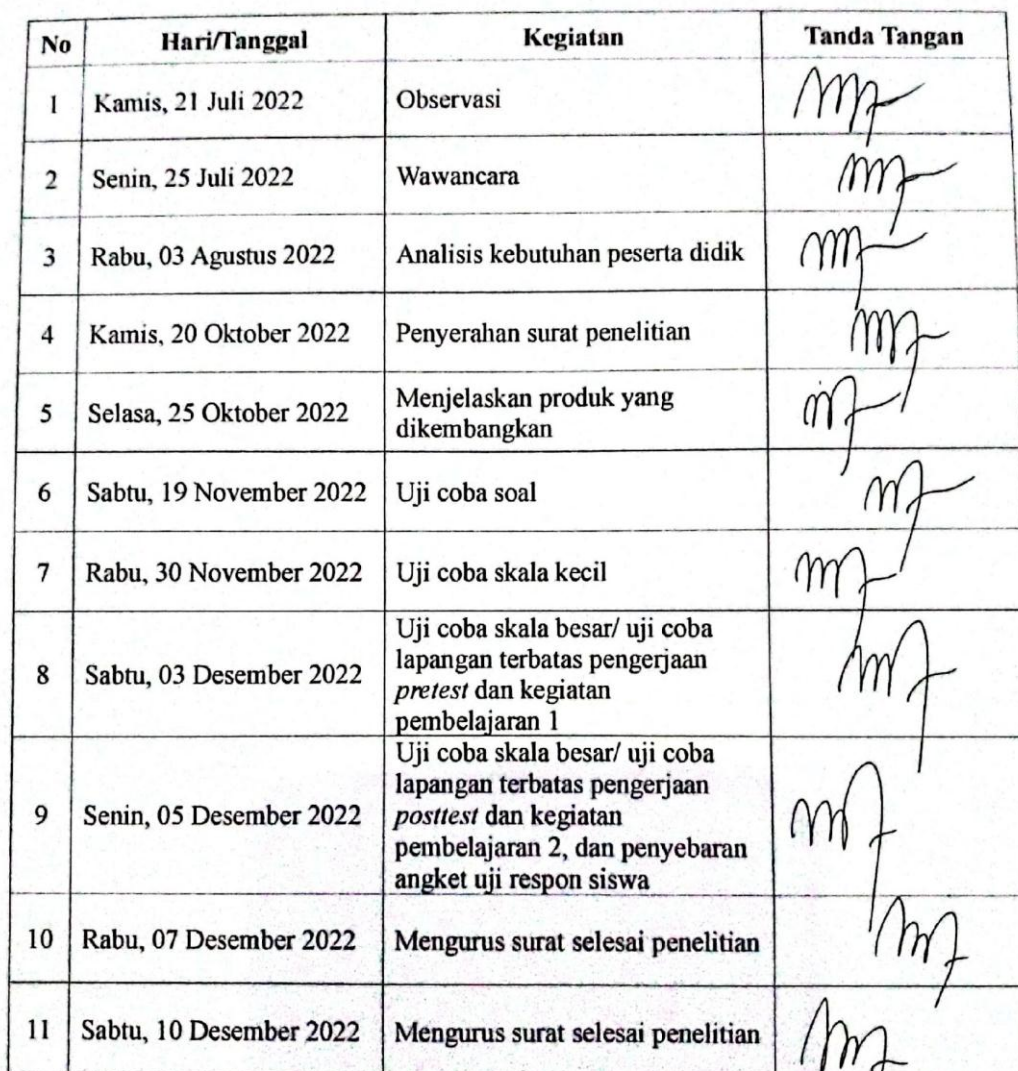 No Hari/Tanggal Kegiatan Tanda Tangan
1 Kamis, 21 Juli 2022 Observasi
2 Senin, 25 Juli 2022 Wawancara
3 Rabu, 03 Agustus 2022 Analisis kebutuhan peserta didik
4 Kamis, 20 Oktober 2022 Penyerahan surat penelitian
5 Selasa, 25 Oktober 2022 Menjelaskan produk yang
dikembangkan
6 Sabtu, 19 November 2022 Uji coba soal
7 Rabu, 30 November 2022 Uji coba skala kecil
8 Sabtu, 03 Desember 2022 Uji coba skala besar/ uji coba
lapangan terbatas pengerjaan
pretest dan kegiatan
pembelajaran 1
9 Senin, 05 Desember 2022 Uji coba skala besar/ uji coba
lapangan terbatas pengerjaan
posttest dan kegiatan
pembelajaran 2, dan penyebaran
angket uji respon siswa
10 Rabu, 07 Desember 2022 Mengurus surat selesai penelitian
11 Sabtu, 10 Desember 2022 Mengurus surat selesai penelitian